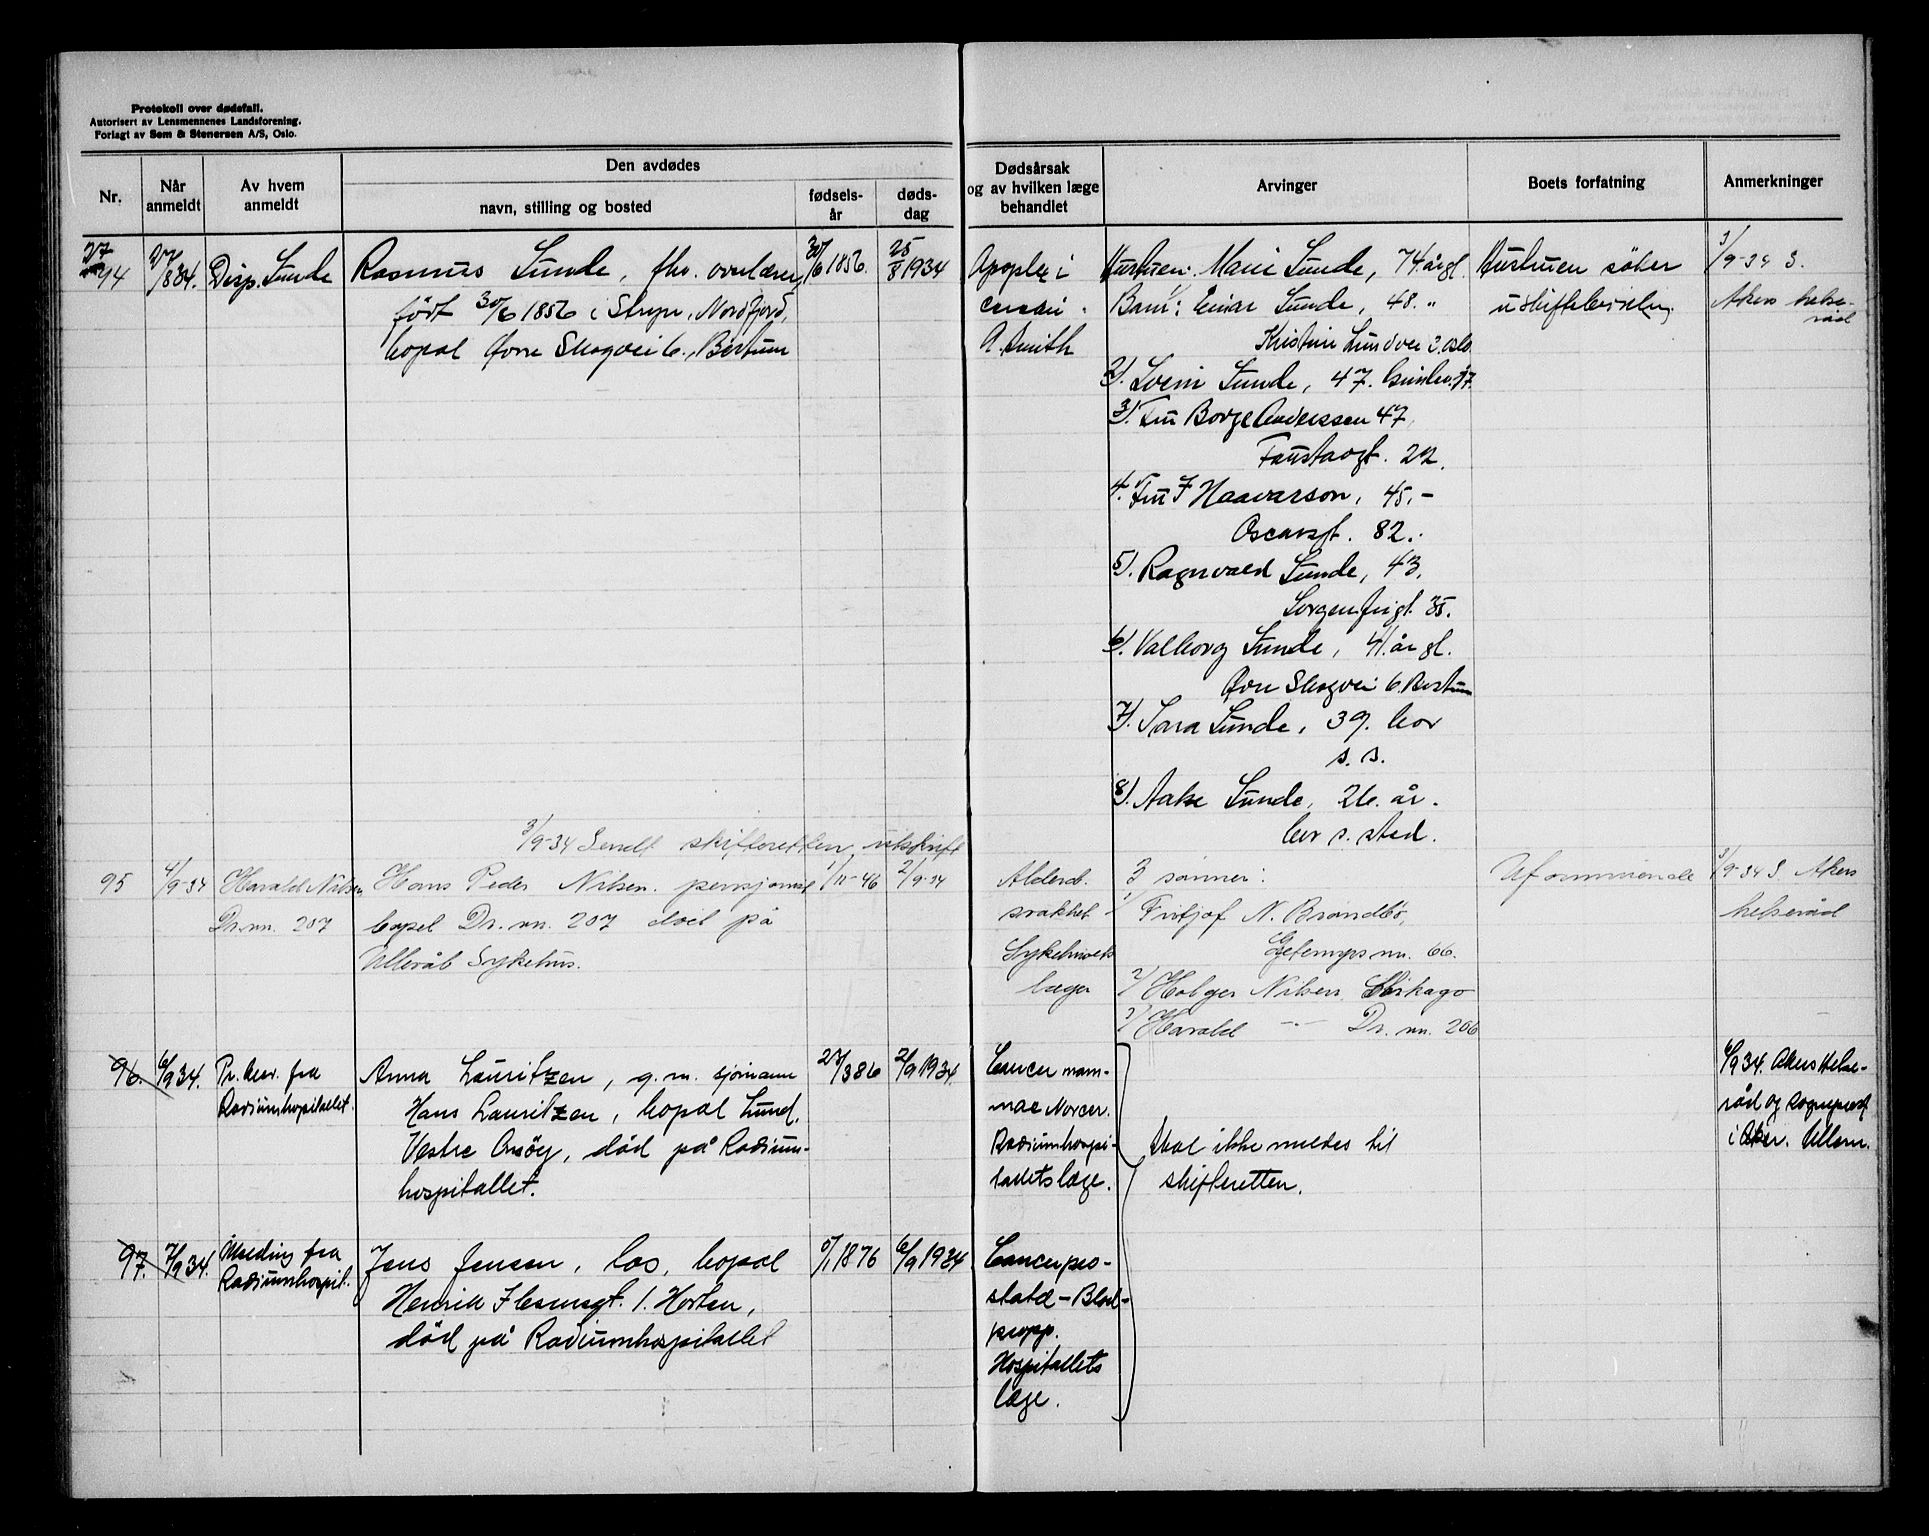 Protokoll over dødsfall.
Autorisert av Lensmennenes Landsforening.
Forlagt av Sem & Stenersen A/S, Oslo.
Nr.
Når anmeldt
Av hvem anmeldt
Den avdødes
navn, stilling og bosted
fødsels-år
døds-dag
Dødsårsak og av hvilken læge behandlet
Arvinger
Boets forfatning
Anmerkninger
94 27/8 34. Disp. Sunde Rasmus Sunde, fhv. overlærer, 30/6 1856. 25/8 1934
født 30/6 1856 i Stryn, Nordfjord,
bopæl Øvre Skogvei 6, Bestum
Apoplexi
cerebri.
A. Smith
Hustruen: Marie Sunde, 74 årgl.
Barn: 1/ Einar Sunde, 48 "
Kristine Lundsvei 2. Oslo
2/. Svein Sunde, 47.
3/. Fru Borge Anderssen 47
Faustasgt. 22.
4. Fru F Haavarson, 45.-
Oscarsgt. 82.
5/. Ragnvald Sunde, 43.
Sorgenfrigt. 35.
6/. Valborg Sunde, 41. år gl.
Øvre Skogvei 6. Bestum
7/. Sara Sunde, 39. bor
s. s.
8/. Aake Sunde, 26. år.
bor s. sted.
Hustruen søker
uskiftebevilling.
3/9-34 S.
Akers helse-
råd
3/9-34 Sendt skifteretten utskrift
95 4/9-34 Harald Nilsen Hans Peder Nilsen. pensjonist 1/11-46 2/9-34
Dr.nn. 207 bopæl Dr. nn. 207 død på
Ullevål Sykehus.
Alderd.
svakhet
Sykehusets
læger
3 sønner:
1/ Fritjof N. Brandbö,
Gjetemyrsvn. 66.
2/ Holger Nilsen Chikago
3/ Harald -"- Dr. nn. 206
Uformuende
3/9-34 S. Akers
helseråd
96. 6/9 34. Pr. brev. fra Anna Lauritzen, g. m. sjömann 23/3 86 2/9 1934.
Radiumhospitalet. Hans Lauritzen, bopæl Lund.
Vestre Onsøy, död på Radium-
hospitallet.
Cancer mam-
mae Norcer.
Radiumhospi-
tallets læge.
Skal ikke meldes til
skifteretten.
6/9 34. Akers Helse-
råd og sogneprest
i Aker. Ullern.
97. 7/9 34. Melding fra Jens Jensen, los, bopæl /1 1876 6/9 1934
Radiumhospit. Henrik Ibsensgt. 1. Horten,
död på Radiumhospitallet
Cancer pro-
statæ - Blod-
propp.
Hospitallets
læge.